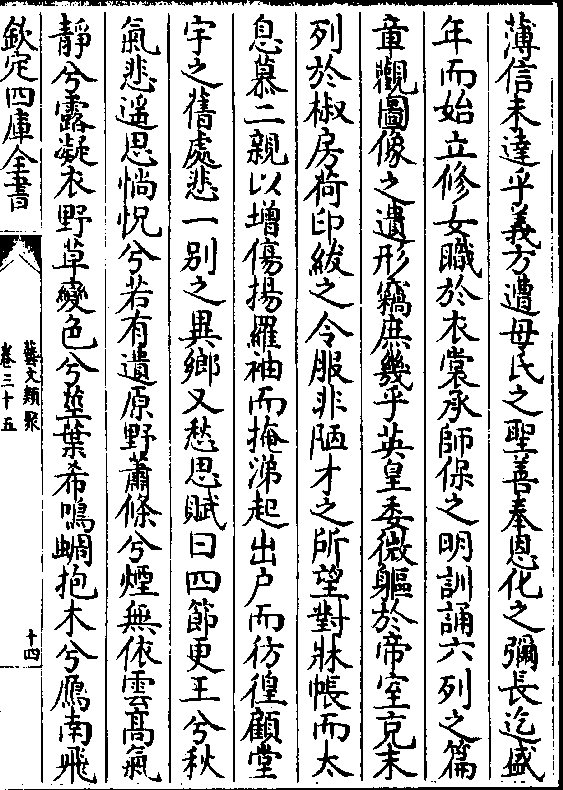 薄信未達乎義方遭母氏之聖善奉恩化之彌長迄盛
年而始立修女職於衣裳承師保之明訓誦六列之篇
章觀圖像之遺形竊庶幾乎英皇委微軀於帝室充末
列於椒房荷印紱之令服非陋才之所望對牀帳而太
息慕二親以增傷揚羅袖而掩涕起出户而彷徨顧堂
宇之舊處悲一别之異鄉又愁思賦曰四節更王兮秋
氣悲遥思惝怳兮若有遺原野蕭條兮煙無依雲髙氣
靜兮露凝衣野草變色兮莖葉希鳴蜩抱木兮鴈南飛
欽定四庫全書
藝文類聚
卷三十五
十四